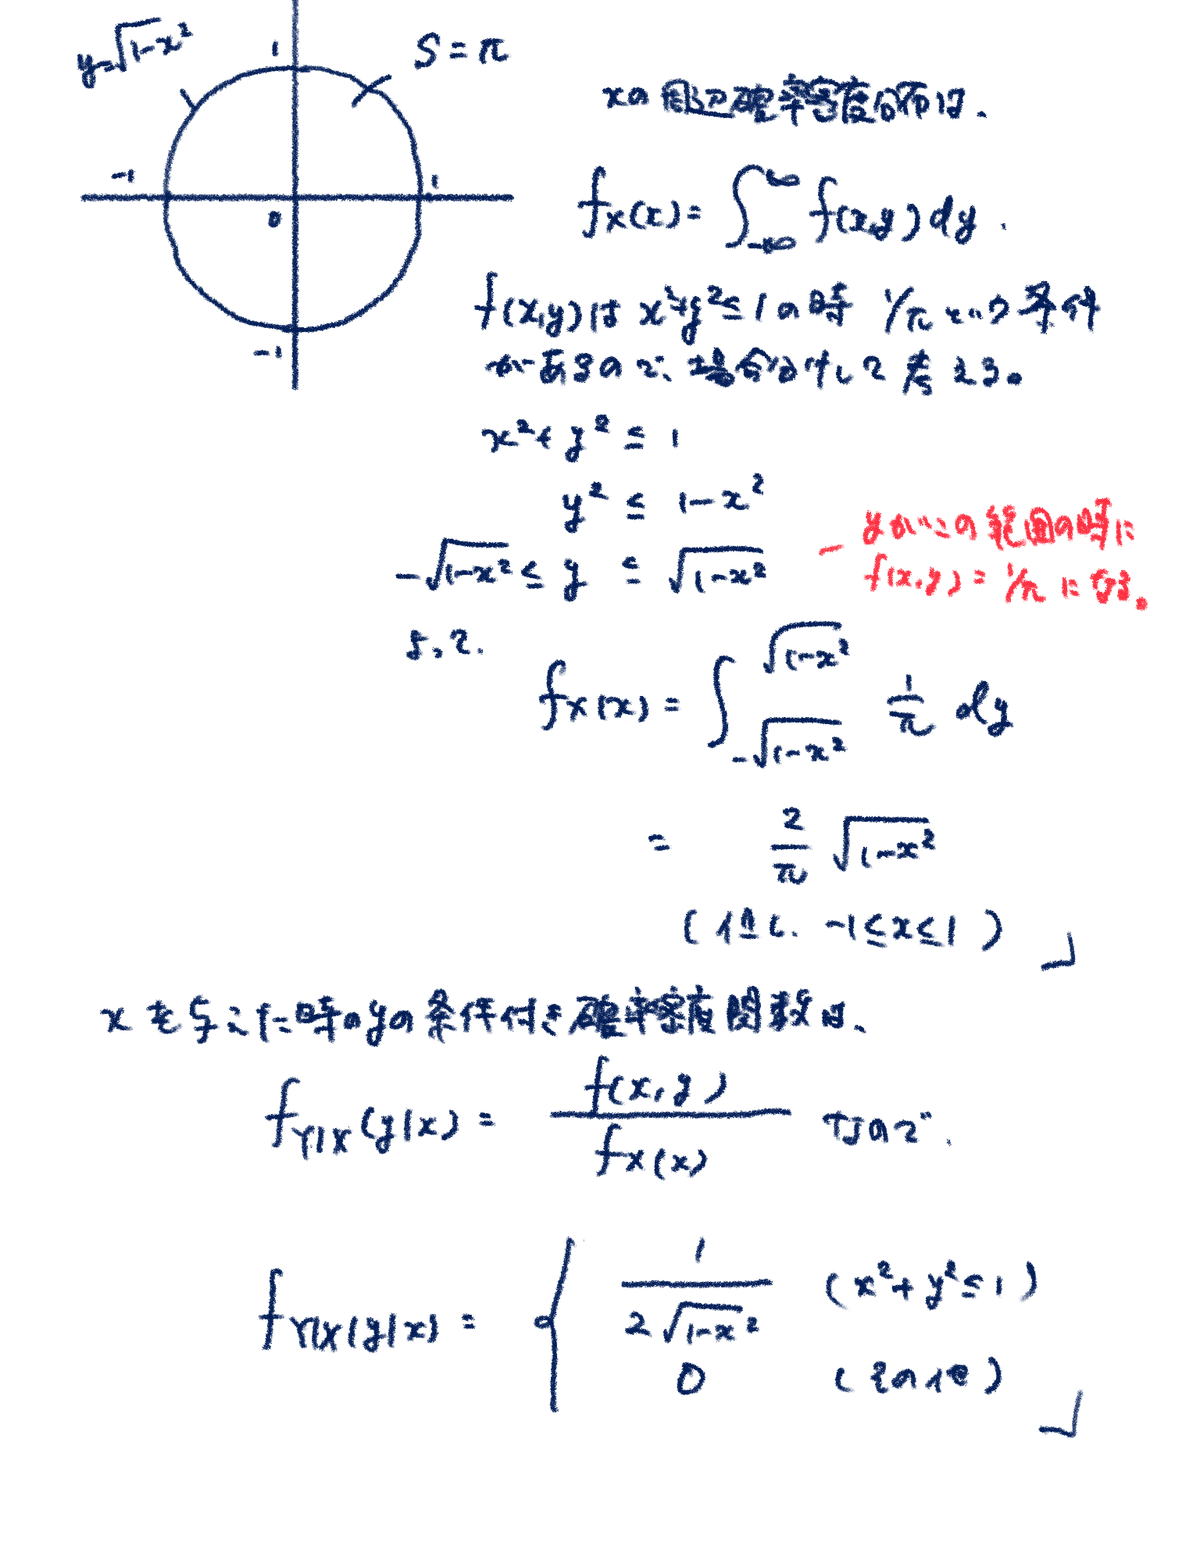 y=√1-x²
1
S = π
-1
1
0
-1
xの周辺確率密度分布は、
fX(x) = ∫_{-∞}^{∞} f(x,y) dy.
f(x,y)は x²+y² ≦ 1 の時 1/π という条件
があるので、場合分けして考える。
x² + y² ≦ 1
y² ≦ 1-x²
-√1-x² ≦ y ≦ √1-x²
- yがこの範囲の時に
f(x,y) = 1/π になる。
よって.
fX(x) = ∫_{-√1-x²}^{√1-x²} 1/π dy
= 2/π √1-x²
(但し. -1≦x≦1) 」
xを与えた時のyの条件付き確率密度関数は、
fY|X(y|x) = f(x,y) / fX(x) なので.
fY|X(y|x) = { 1 / 2√1-x² (x²+y²≦1)
0 (その他) 」